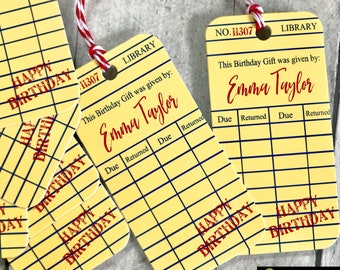 HAPPY
BIRTHDAY
HAPPY
BIRTH
NO. 11307 LIBRARY
This Birthday Gift was given by:
Emma Taylor
Due Returned Due Returned
HAPPY
BIRTHDAY
NO. 11307 LIBRARY
This Birthday Gift was given by:
Emma Taylor
Due Returned Due Returned
HAPPY
BIRTHDAY
HAPPY
BIRTHDAY